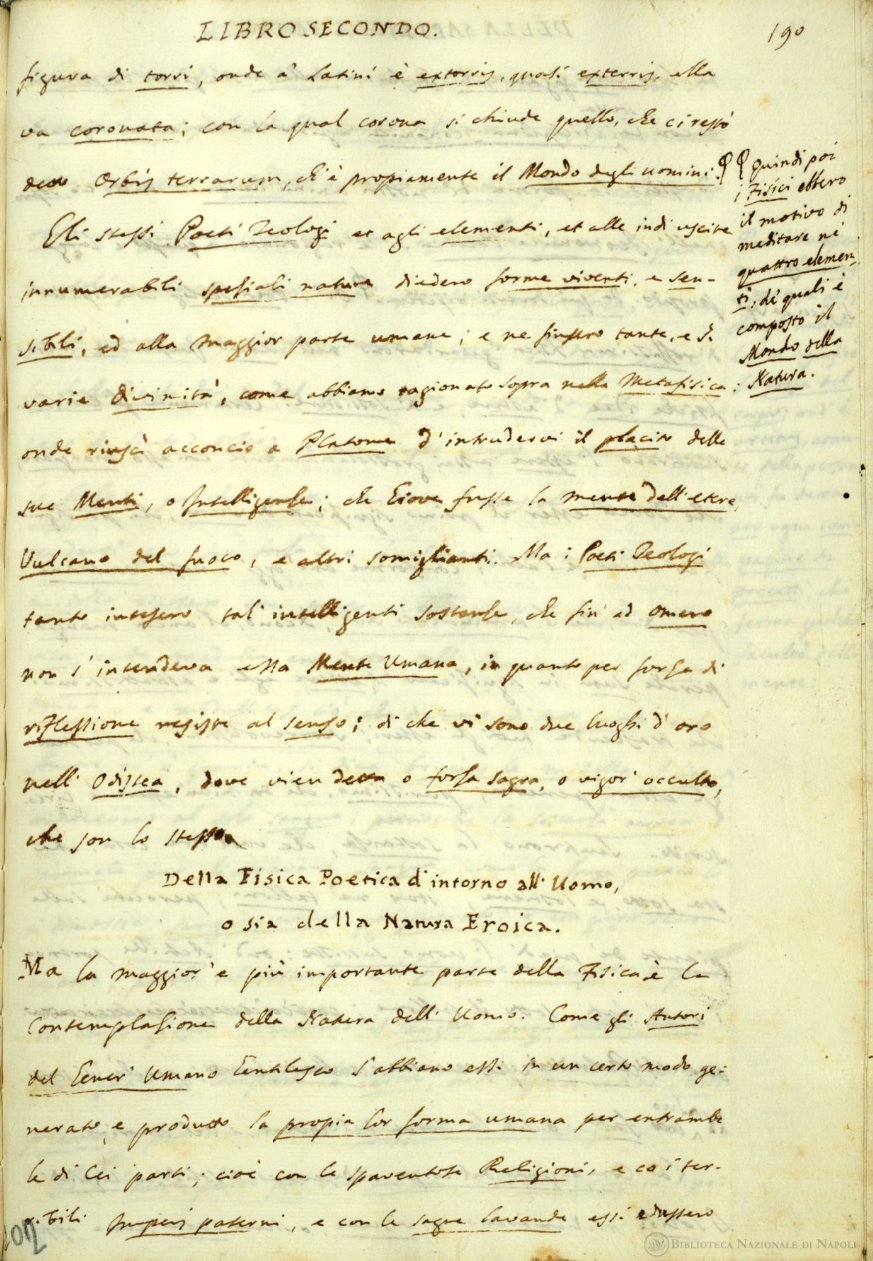 LIBRO SECONDO.
190
figura di torri, onde a' Latini è extorris, quasi exterris, ella
va coronata; con la qual corona si chiude quello, che ci restò
detto Orbis terrarum, ch'è propiamente il Mondo degli uomini.
Gli stessi Poeti Teologi et agli elementi, et alle indi uscite
innumerabili speziali nature diedero forme viventi, e sen-
sibili, ed alla maggior parte umane; e ne finsero tante, e sì
varie divinità, come abbiamo ragionato sopra nella Metafisica:
onde riuscì acconcio a Platone d'intrudervi il placito delle
sue Menti, o Intelligenze; che Giove fusse la mente dell'etere,
Vulcano del fuoco, e altri somiglianti. Ma i Poeti Teologi
tanto intesero tal' intelligenti sostanze, che fin' ad Omero
non s'intendeva essa Mente Umana, in quanto per forza di
riflessione resiste al senso; di che vi sono due luoghi d'oro
nell' Odissea, dove vien detta o forza sagra, o vigor' occulto,
che son lo stesso.
Della Fisica Poetica d'intorno all' Uomo,
o sia della Natura Eroica.
Ma la maggior' e più importante parte della Fisica è la
Contemplazione della Natura dell' Uomo. Come gli Autori
del Gener' Umano Gentilesco s'abbiano essi in un certo modo ge-
nerato, e produtto la propia lor forma umana per entrambe
le di lei parti; cioè con le spaventose Religioni, e co i ter-
ribili Imperj paterni, e con le sagre lavande essi edussero
Quindi poi
i Fisici ebbero
il motivo di
meditare ne'
quattro elemen-
ti, de' quali è
composto il
Mondo della
Natura.
BIBLIOTECA NAZIONALE DI NAPOLI